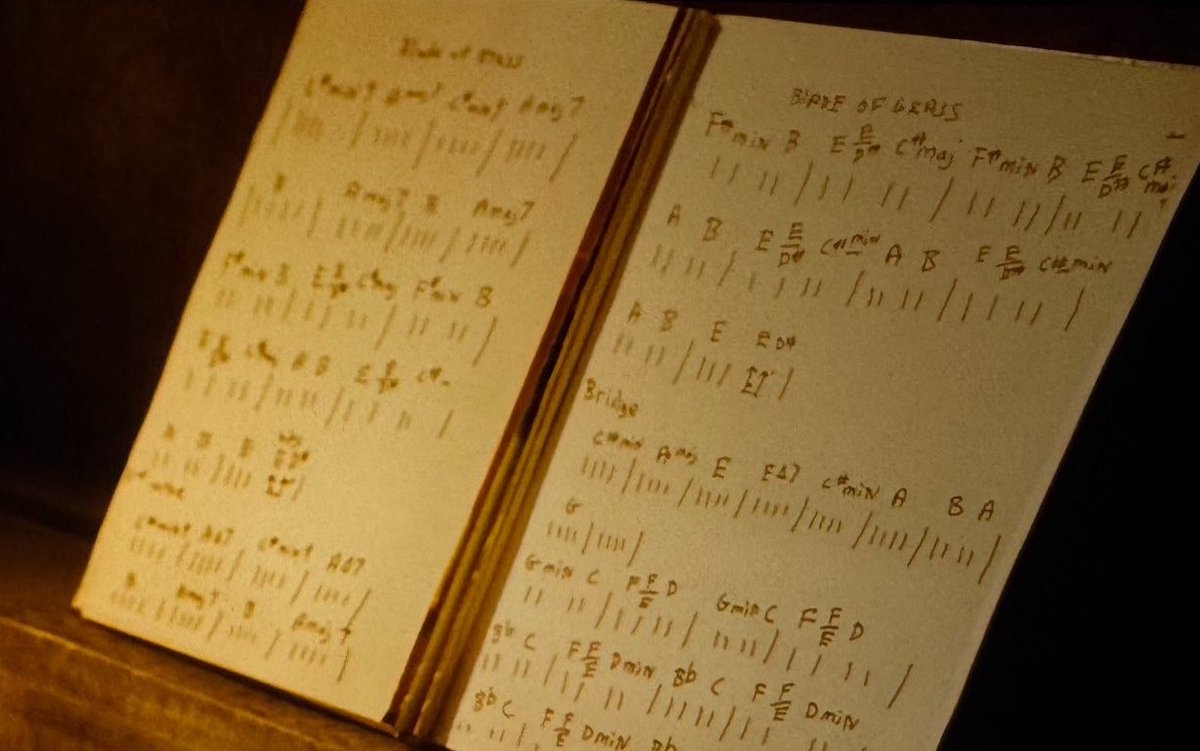 Blade of Grass
B Amaj7 B Amaj7
F#min B E E/D# C#maj F#min B
E E/D# C#maj A B E E/D# C#-
A B E
C#min9 AΔ7 C#min9 AΔ7
B Amaj7 B Amaj7
BLADE OF GRASS
F#min B E E/D# C#maj F#min B E E/D# C#maj
A B E E/D# C#min A B E E/D# C#min
A B E E D#
Bridge
C#min Amaj E EΔ7 C#min A B A
G
Gmin C F F/E D Gmin C F F/E D
Bb C F F/E Dmin Bb C F F/E Dmin
Bb C F F/E Dmin Bb